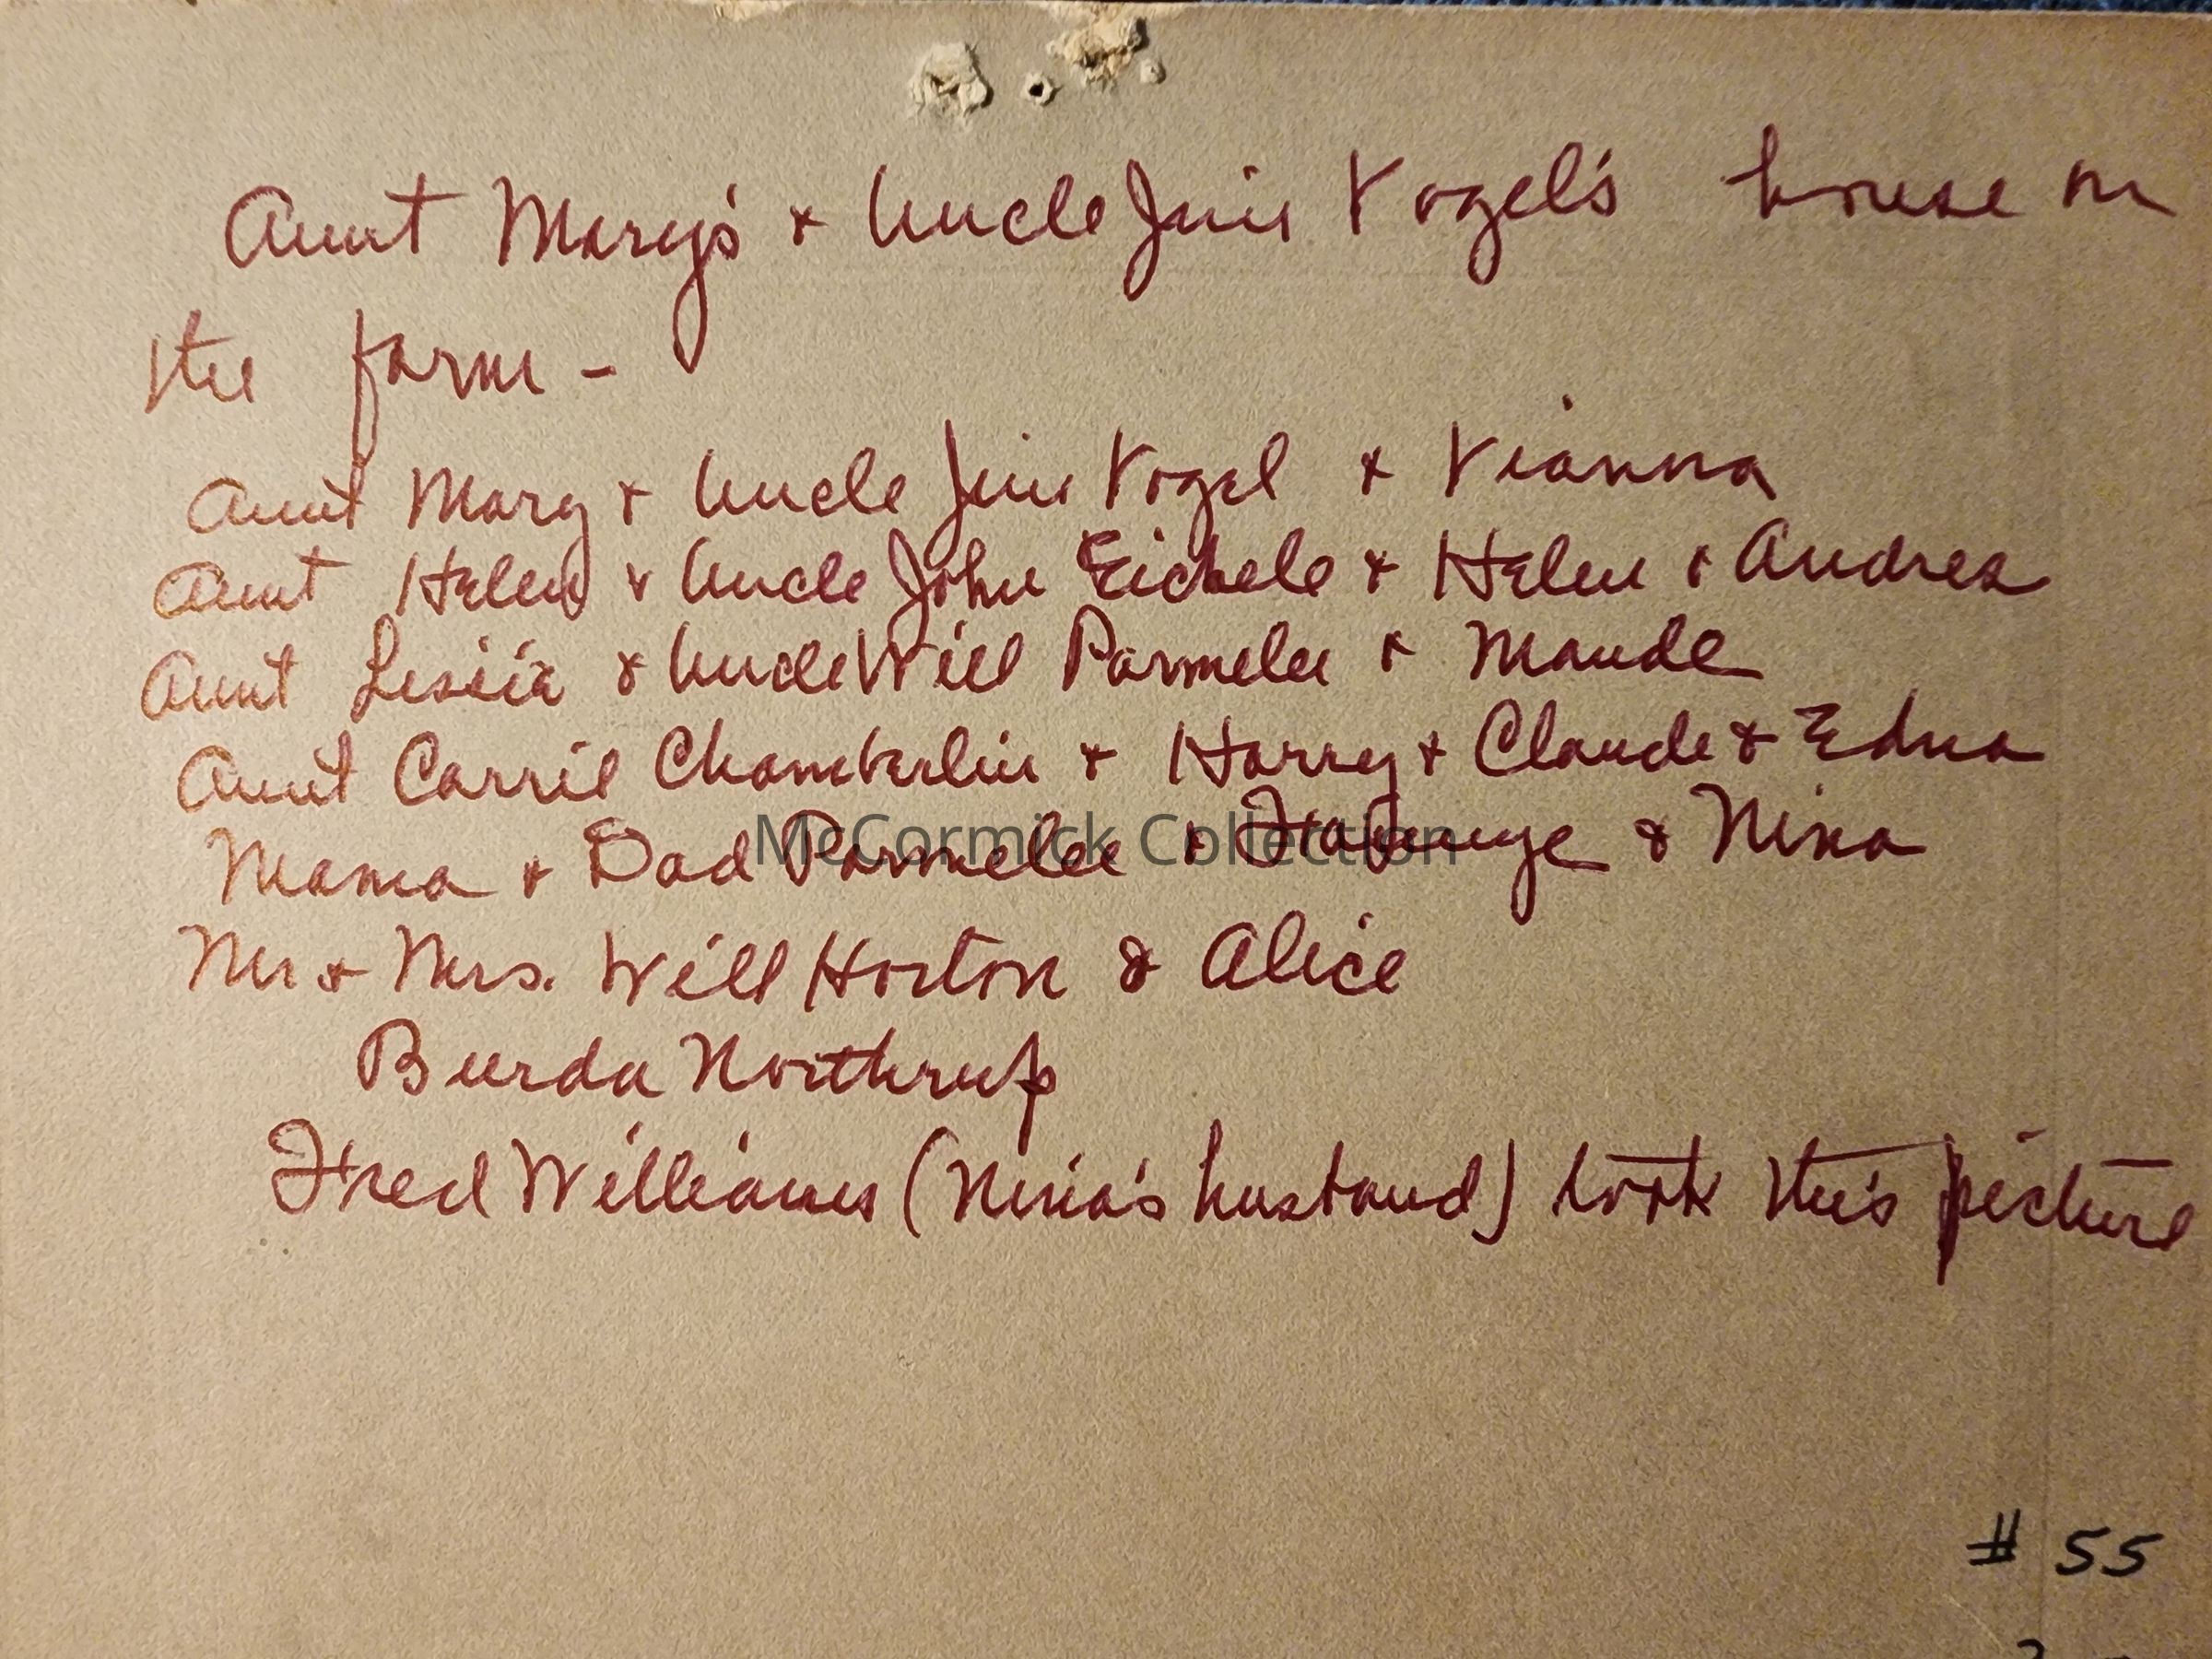 Aunt Mary's & Uncle Jim Vogel's house on
the farm -
Aunt Mary & Uncle Jim Vogel & Vianna
Aunt Helen & Uncle John Eichele & Helen & Andrea
Aunt Lissia & Uncle Will Parmelee & Maude
Aunt Carrie Chamberlin & Harry & Claude & Edna
Mama & Dad Parmelee & & Nina
McCormick Collection
Mr & Mrs. Will Horton & Alice
Burda Northrup
Fred Williams (Nina's husband) took this picture
# 55